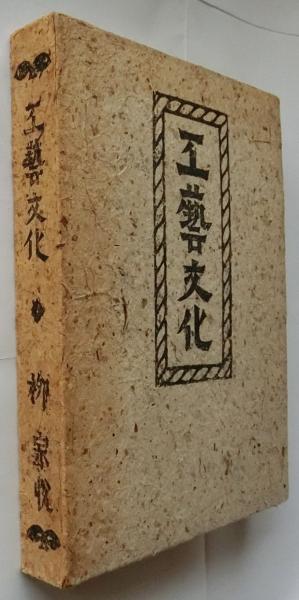 工藝文化
工藝文化
柳宗悦